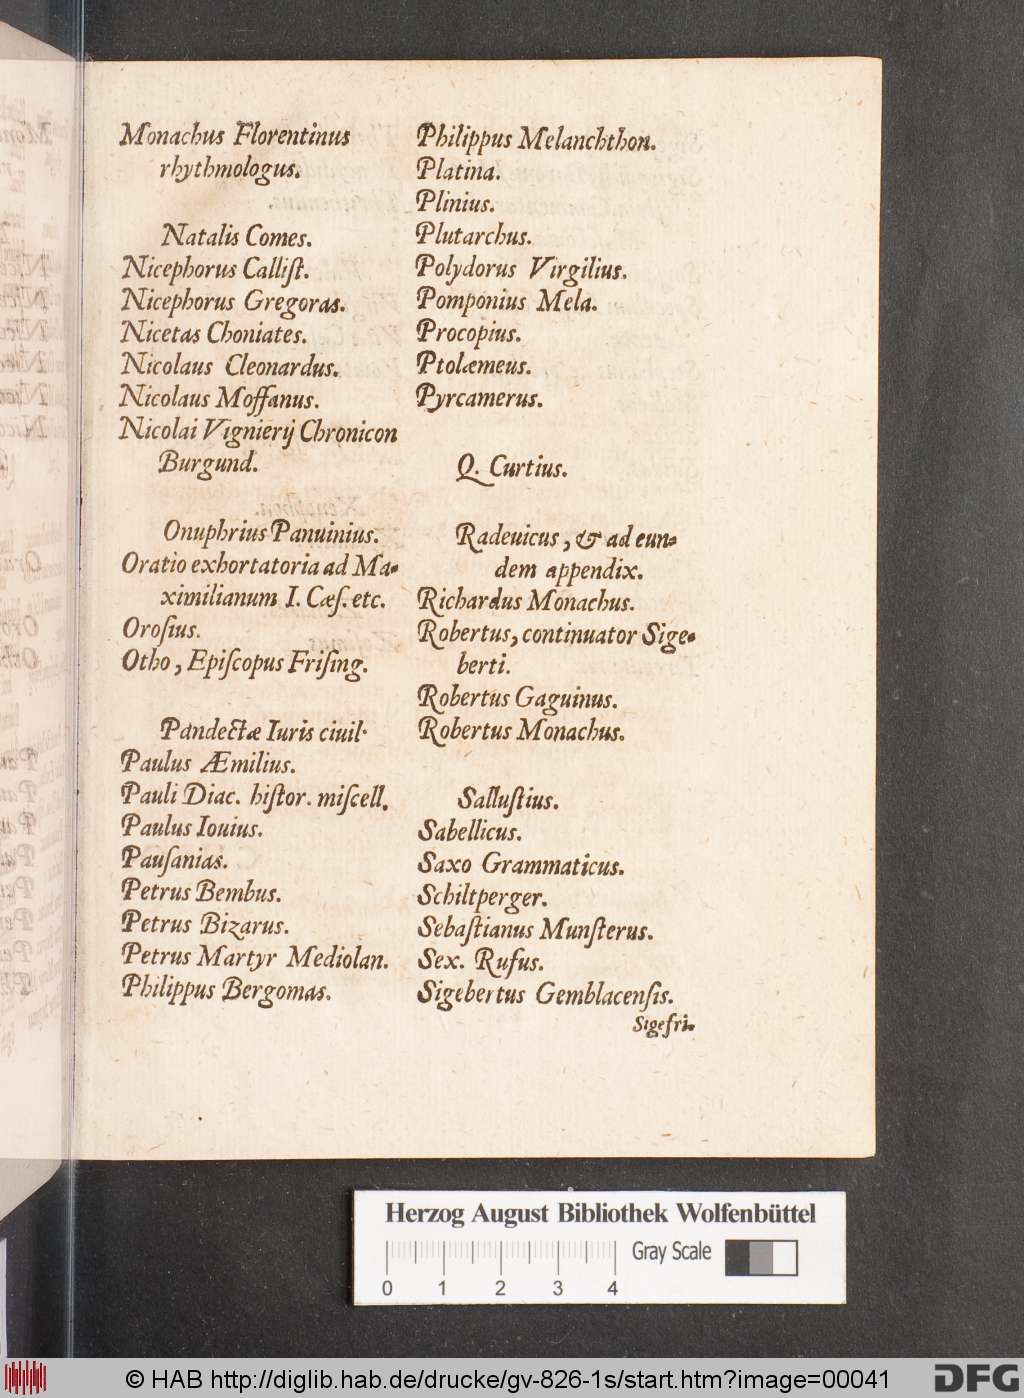 Monachus Florentinus
rhythmologus.
Natalis Comes.
Nicephorus Calliſt.
Nicephorus Gregoras.
Nicetas Choniates.
Nicolaus Cleonardus.
Nicolaus Moffanus.
Nicolai Vignierij Chronicon
Burgund.
Onuphrius Panuinius.
Oratio exhortatoria ad Ma-
ximilianum I. Cæſ. etc.
Oroſius.
Otho, Epiſcopus Friſing.
Pandectæ Iuris ciuil.
Paulus Æmilius.
Pauli Diac. hiſtor. miſcell.
Paulus Iouius.
Pauſanias.
Petrus Bembus.
Petrus Bizarus.
Petrus Martyr Mediolan.
Philippus Bergomas.
Philippus Melanchthon.
Platina.
Plinius.
Plutarchus.
Polydorus Virgilius.
Pomponius Mela.
Procopius.
Ptolæmeus.
Pyrcamerus.
Q. Curtius.
Radeuicus, & ad eun-
dem appendix.
Richardus Monachus.
Robertus, continuator Sige-
berti.
Robertus Gaguinus.
Robertus Monachus.
Salluſtius.
Sabellicus.
Saxo Grammaticus.
Schiltperger.
Sebaſtianus Munſterus.
Sex. Rufus.
Sigebertus Gemblacenſis.
Sigefri-
Herzog August Bibliothek Wolfenbüttel
Gray Scale
0 1 2 3 4
© HAB http://diglib.hab.de/drucke/gv-826-1s/start.htm?image=00041
DFG